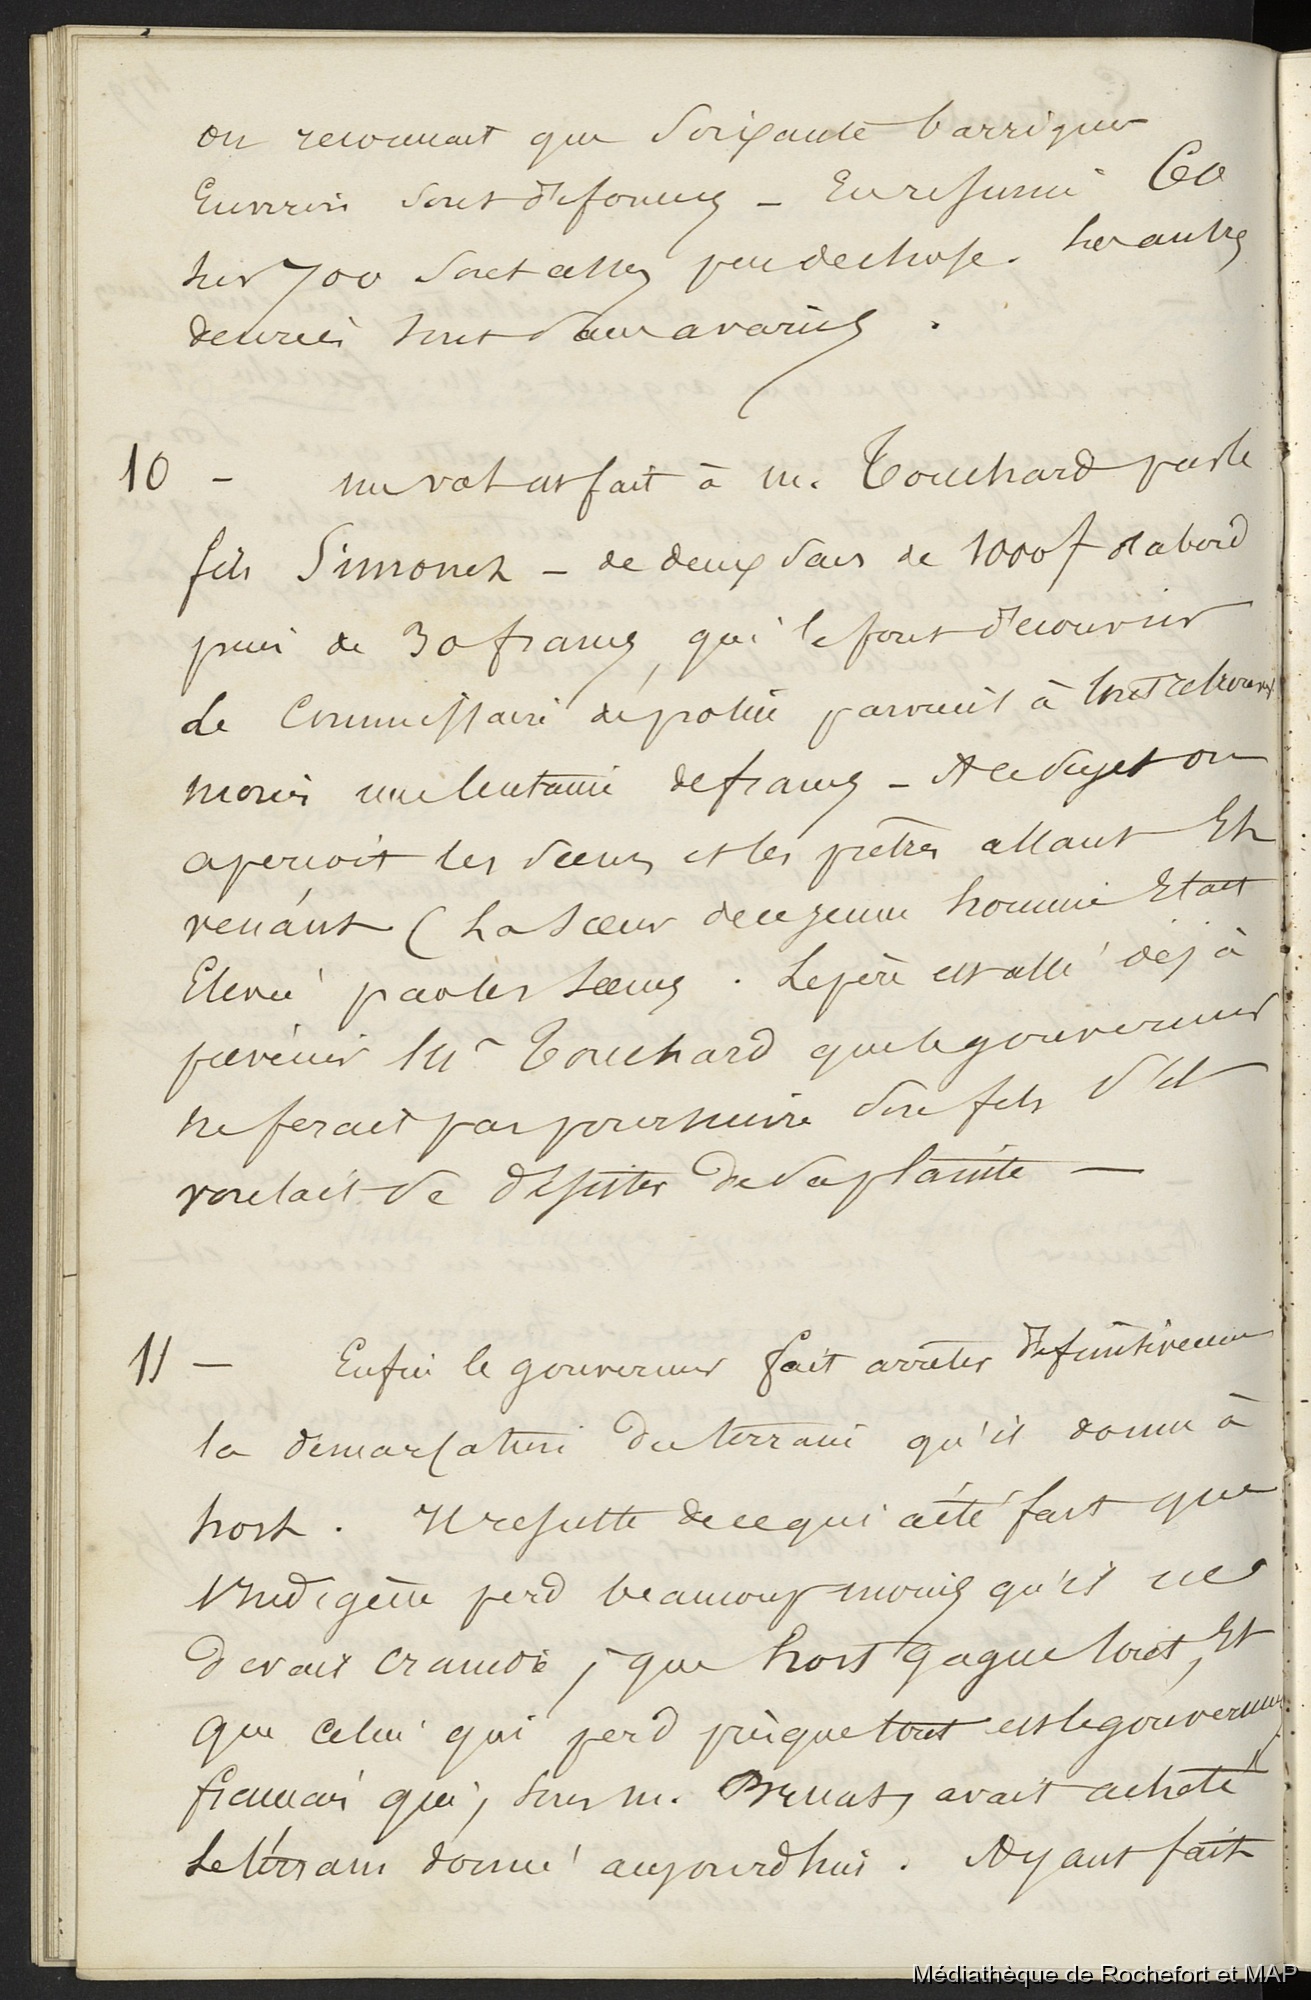 on reconnait que soixante barriques
Environ sont défoncées - En resumé 60
sur 700 c'est assez peu de chose. Les autres
denrées sont sans avaries.
10 - un vol est fait à M. Touchard par le
fils Simonet - de deux sacs de 1000f d'abord
puis de 30 francs, qui le font découvrir
Le Commissaire de police parvient à tout retrouver
moins une centaine de francs - A ce sujet on
aperçoit les sœurs et les prêtres allant Et
venant (La sœur de ce jeune homme Etait
Elevée par les sœurs. Le père est allé déjà
prévenir Mr Touchard que le gouverneur
ne ferait pas poursuivre son fils s'il
voulait se désister de sa plainte -
11 - Enfin le gouverneur fait arrêter définitivement
la démarcation du terrain qu'il donne à
hort. Il resulte de ce qui a été fait que
l'indigène perd beaucoup moins qu'il ne
devait craindre, que hort gagne tout, Et
que celui qui perd presque tout est le gouvernement
français qui, sous M. Bruat, avait acheté
le terrain donné aujourd'hui. Ayant fait
Médiathèque de Rochefort et MAP